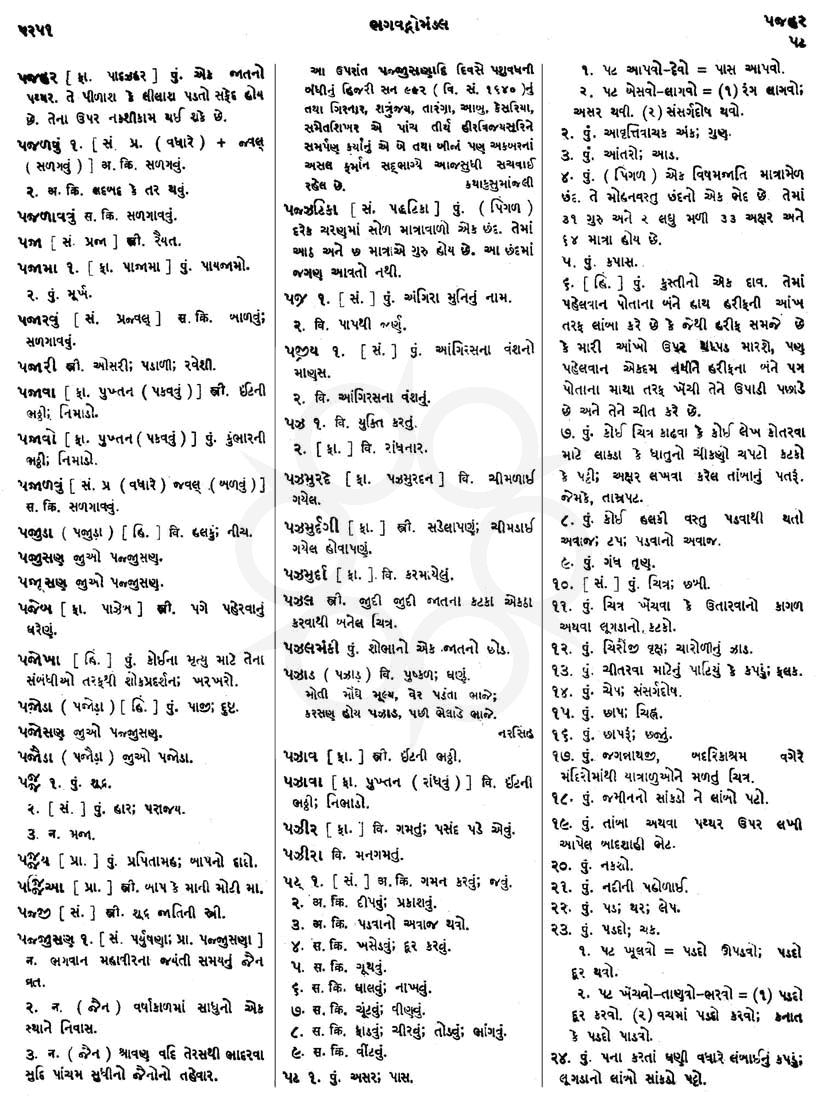 ૫૨૫૧
ભગવદ્ગોમંડલ
પજહર
પટ
પજહર [ ફા. પાદઝહર ] પું. એક જાતનો
પથ્થર. તે પીળાશ કે લીલાશ પડતો સફેદ હોય
છે. તેના ઉપર નકશીકામ થઈ શકે છે.
પજળવું ૧. [ સં. પ્ર. ( વધારે ) + જ્વલ્
( સળગવું ) ] અ. ક્રિ. સળગવું.
૨. અ. ક્રિ. લદબદ કે તર થવું.
પજળાવવું સ. ક્રિ. સળગાવવું.
પજા [ સં. પ્રજા ] સ્ત્રી. રૈયત.
પજામા ૧. [ ફા. પાજામા ] પું. પાયજામો.
૨. પું. મૂર્ખ.
પજારવું [ સં. પ્રજ્વલ્ ] સ. ક્રિ. બાળવું;
સળગાવવું.
પજારી સ્ત્રી. ઓસરી; પડાળી; રવેશી.
પજાવા [ ફા. પુખ્તન ( પકવવું ) ] સ્ત્રી. ઈંટની
ભઠ્ઠી; નિમાડો.
પજાવો [ ફા. પુખ્તન ( પકવવું ) ] પું. કુંભારની
ભઠ્ઠી; નિમાડો.
પજાળવું [ સં. પ્ર ( વધારે ) જ્વલ્ ( બળવું ) ]
સ. ક્રિ. સળગાવવું.
પજીડા ( પજીડા ) [ હિં. ] વિ. હલકું; નીચ.
પજીસણ જીઓ પજ્જીસણ.
પજૂસણ જીઓ પજ્જીસણ.
પજેબ [ ફા. પાઝેબ ] સ્ત્રી. પગે પહેરવાનું
ઘરેણું.
પજોખા [ હિં. ] પું. કોઈના મૃત્યુ માટે તેના
સંબંધીઓ તરફથી શોકપ્રદર્શન; ખરખરો.
પજોડા ( પજોડા ) [ હિં. ] પું. પાજી; દુષ્ટ.
પજોસણ જીઓ પજ્જીસણ.
પજૌડા ( પજૌડા ) જીઓ પજોડા.
પજ્જ ૧. પું. શૂદ્ર.
૨. [ સં. ] પું. હાર; પરાજય.
૩. ન. મજા.
[ પ્રા. ] પું. પ્રપિતામહ; બાપનો દાદો.
[ પ્રા. ] સ્ત્રી. બાપ કે માની મોટી મા.
પજ્જી [ સં. ] સ્ત્રી. શૂદ્ર જાતિની સ્ત્રી.
પજ્જીસણ ૧. [ સં. પર્યુષણા; પ્રા. પજ્જીસણા ]
ન. ભગવાન મહાવીરના જયંતી સમયનું જૈન
વ્રત.
૨. ન. ( જૈન ) વર્ષાકાળમાં સાધુનો એક
સ્થાને નિવાસ.
૩. ન. ( જૈન ) શ્રાવણ વદિ તેરસથી ભાદરવા
સુદિ પાંચમ સુધીનો જૈનોનો તહેવાર.
આ ઉપરાંત પજ્જીસણાદિ દિવસે પશુવધની
બંધીનું હિજરી સન ૯૯૨ ( વિ. સં. ૧૬૪૦ )નું
તથા ગિરનાર, શત્રુંજય, તારંગા, આબુ, કેસરિયા,
સમેતશિખર એ પાંચ તીર્થ હીરવિજયસૂરિને
સમર્પણ કર્યાનું એ બે તથા બીજાં પણ અકબરનાં
અસલ ફર્માન સદ્ભાગ્યે આજસુધી સચવાઈ
રહેલ છે. કથાકુસુમાંજલી
પજ્ઝટિકા [ સં. પદ્ધટિકા ] પું. ( પિંગળ )
દરેક ચરણમાં સોળ માત્રાવાળો એક છંદ. તેમાં
આઠ અને ૭ માત્રાએ ગુરુ હોય છે. આ છંદમાં
જગણ આવતો નથી.
પજ્ર ૧. [ સં. ] પું. અંગિરા મુનિનું નામ.
૨. વિ. પાપથી જીર્ણ.
પજ્રીય ૧. [ સં. ] પું. આંગિરસના વંશનો
માણસ.
૨. વિ. આંગિરસના વંશનું.
પઝ ૧. વિ. યુક્તિ કરતું.
૨. [ ફા. ] વિ. રાંધનાર.
પઝમુરદે [ ફા. પઝમુરદન ] વિ. ચીમળાઈ
ગયેલ.
પઝમુર્દગી [ ફા. ] સ્ત્રી. સડેલાપણું; ચીમડાઈ
ગયેલ હોવાપણું.
પઝમુર્દા [ ફા. ] વિ. કરમાયેલું.
પઝલ સ્ત્રી. જીદી જીદી જાતના કટકા એકઠા
કરવાથી બનેલ ચિત્ર.
પઝલમંકી પું. શોભાનો એક જાતનો છોડ.
પઝાડ ( પઝાડ ) વિ. પુષ્કળ; ઘણું.
મોતી મોંઘે મૂલ્ય, વેર પડંતા ભાજે;
કરસણ હોય પઝાડ, પછી ભેલાડે ભાજે.
નરસિંહ
પઝાવ [ ફા. ] સ્ત્રી. ઈંટની ભઠ્ઠી.
પઝાવા [ ફા. પુખ્તન ( રાંધવું ) ] વિ. ઈંટની
ભઠ્ઠી; નિભાડો.
પઝીર [ ફા. ] વિ. ગમતું; પસંદ પડે એવું.
પઝીરા વિ. મનગમતું.
પટ્ ૧. [ સં. ] અ. ક્રિ. ગમન કરવું; જવું.
૨. અ. ક્રિ. દીપવું; પ્રકાશવું.
૩. અ. ક્રિ. પડવાનો અવાજ થવો.
૪. સ. ક્રિ. ખસેડવું; દૂર કરવું.
૫. સ. ક્રિ. ગૂથવું.
૬. સ. ક્રિ. ઘાલવું; નાખવું.
૭. સ. ક્રિ. ચૂંટવું; વીણવું.
૮. સ. ક્રિ. ફાડવું; ચીરવું; તોડવું; ભાંગવું.
૯. સ. ક્રિ. વીંટવું.
પટ ૧. પું. અસર; પાસ.
૧. પટ આપવો-દેવો = પાસ આપવો.
૨. પટ બેસવો-લાગવો = (૧) રંગ લાગવો;
અસર થવી. (૨) સંસર્ગદોષ થવો.
૨. પું. આવૃત્તિવાચક અંક; ગુણ.
૩. પું. આંતરો; આડ.
૪. પું. ( પિંગળ ) એક વિષમજાતિ માત્રામેળ
છંદ. તે મોહનવસ્તુ છંદનો એક ભેદ છે. તેમાં
૩૧ ગુરુ અને ૨ લઘુ મળી ૩૩ અક્ષર અને
૬૪ માત્રા હોય છે.
૫. પું. કપાસ.
૬. [ હિં. ] પું. કુસ્તીનો એક દાવ. તેમાં
પહેલવાન પોતાના બંને હાથ હરીફની આંખ
તરફ લાંબા કરે છે કે જેથી હરીફ સમજે છે
કે મારી આંખો ઉપર થપ્પડ મારશે, પણ
પહેલવાન એકદમ નમીને હરીફના બંને પગ
પોતાના માથા તરફ ખેંચી તેને ઉપાડી પછાડે
છે અને તેને ચીત કરે છે.
૭. પું. કોઈ ચિત્ર કાઢવા કે કોઈ લેખ કોતરવા
માટે લાકડા કે ધાતુનો ચીકણો ચપટો કટકો
કે પટ્ટી; અક્ષર લખવા કરેલ તાંબાનું પતરૂં.
જેમકે, તામ્રપટ.
૮. પું. કોઈ હલકી વસ્તુ પડવાથી થતો
અવાજ; ટપ; પડવાનો અવાજ.
૯. પું. ગંધ તૃણ.
૧૦. [ સં. ] પું. ચિત્ર; છબી.
૧૧. પું. ચિત્ર ખેંચવા કે ઉતારવાનો કાગળ
અથવા લૂગડાનો કટકો.
૧૨. પું. ચિરૌંજી વૃક્ષ; ચારોળીનું ઝાડ.
૧૩. પું. ચીતરવા માટેનું પાટિયું કે કપડું; ફલક.
૧૪. પું. ચેપ; સંસર્ગદોષ.
૧૫. પું. છાપ; ચિહ્ન.
૧૬. પું. છાપરૂં; છજું.
૧૭. પું. જગન્નાથજી, બદરિકાશ્રમ વગેરે
મંદિરોમાંથી યાત્રાળુઓને મળતું ચિત્ર.
૧૮. પું. જમીનનો સાંકડો ને લાંબો પટો.
૧૯. પું. તાંબા અથવા પથ્થર ઉપર લખી
આપેલ બાદશાહી ભેટ.
૨૦. પું. નકશો.
૨૧. પું. નદીની પહોળાઈ.
૨૨. પું. પડ; થર; લેપ.
૨૩. પું. પડદો; ચક.
૧. પટ ખૂલવો = પડદો ઊપડવો; પડદો
દૂર થવો.
૨. પટ ખેંચવો-તાણવો-ભરવો = (૧) પડદો
દૂર કરવો. (૨) વચમાં પડદો કરવો; કનાત
કે પડદો પાડવો.
૨૪. પું. પના કરતાં ઘણી વધારે લંબાઈનું કપડું;
લૂગડાનો લાંબો સાંકડો પટ્ટો.